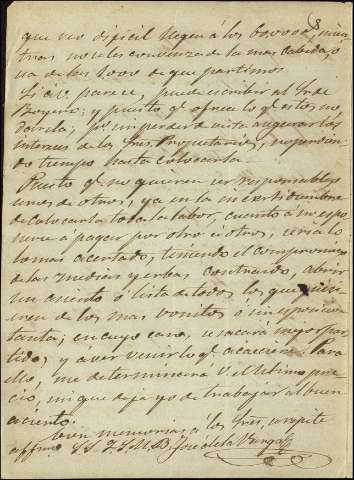 8
que veo dificil llegen á los 60000, mien
tras no se les convenza de la mas cabida, o
va de los 4000 de que partimos
Si á V. parece, puede escribir al Sr. de
Boyero; y puesto ql. ofrece lo ql. estos no
darela; pr. sin perder de vista asegurar los
intereses de los Sres. Propietarios, no perdien
do tiempo hasta colocarla.
Puesto ql. no quieren ser responsables
unos de otros, ya en la incertidumbre
de colocarla toda la labor, cuanto á no espo
nerse á pagar por otro ú otros, seria lo
lo mas acertado, teniendo el compromiso
de las medias yerbas contraido, abrir
un asiento ó lista de todos los que quie
ren de los mas bonitos ó
tanta; en cuyo caso, se sacará mejor par
tido, y a ver venir lo ql. acaeciere. Para
ello, me determinera V. el ultimo pre
cio, sin que deje yo de trabajar al buen
aciento.
Con memorias á los Sres., se repite
affmo. S. S. Q. S. M. B. José de la Varga